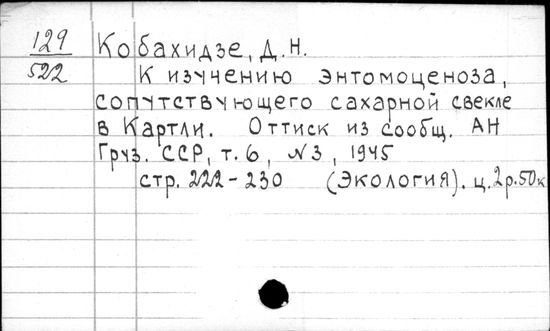 129
522
Кобахидзе, Д.Н.
К изучению энтомоценоза,
сопутствующего сахарной свекле
в Картли. Оттиск из сообщ. АН
Груз. ССР, т. 6, N3, 1945
стр. 222-230 (Экология). ц. 2р.50к